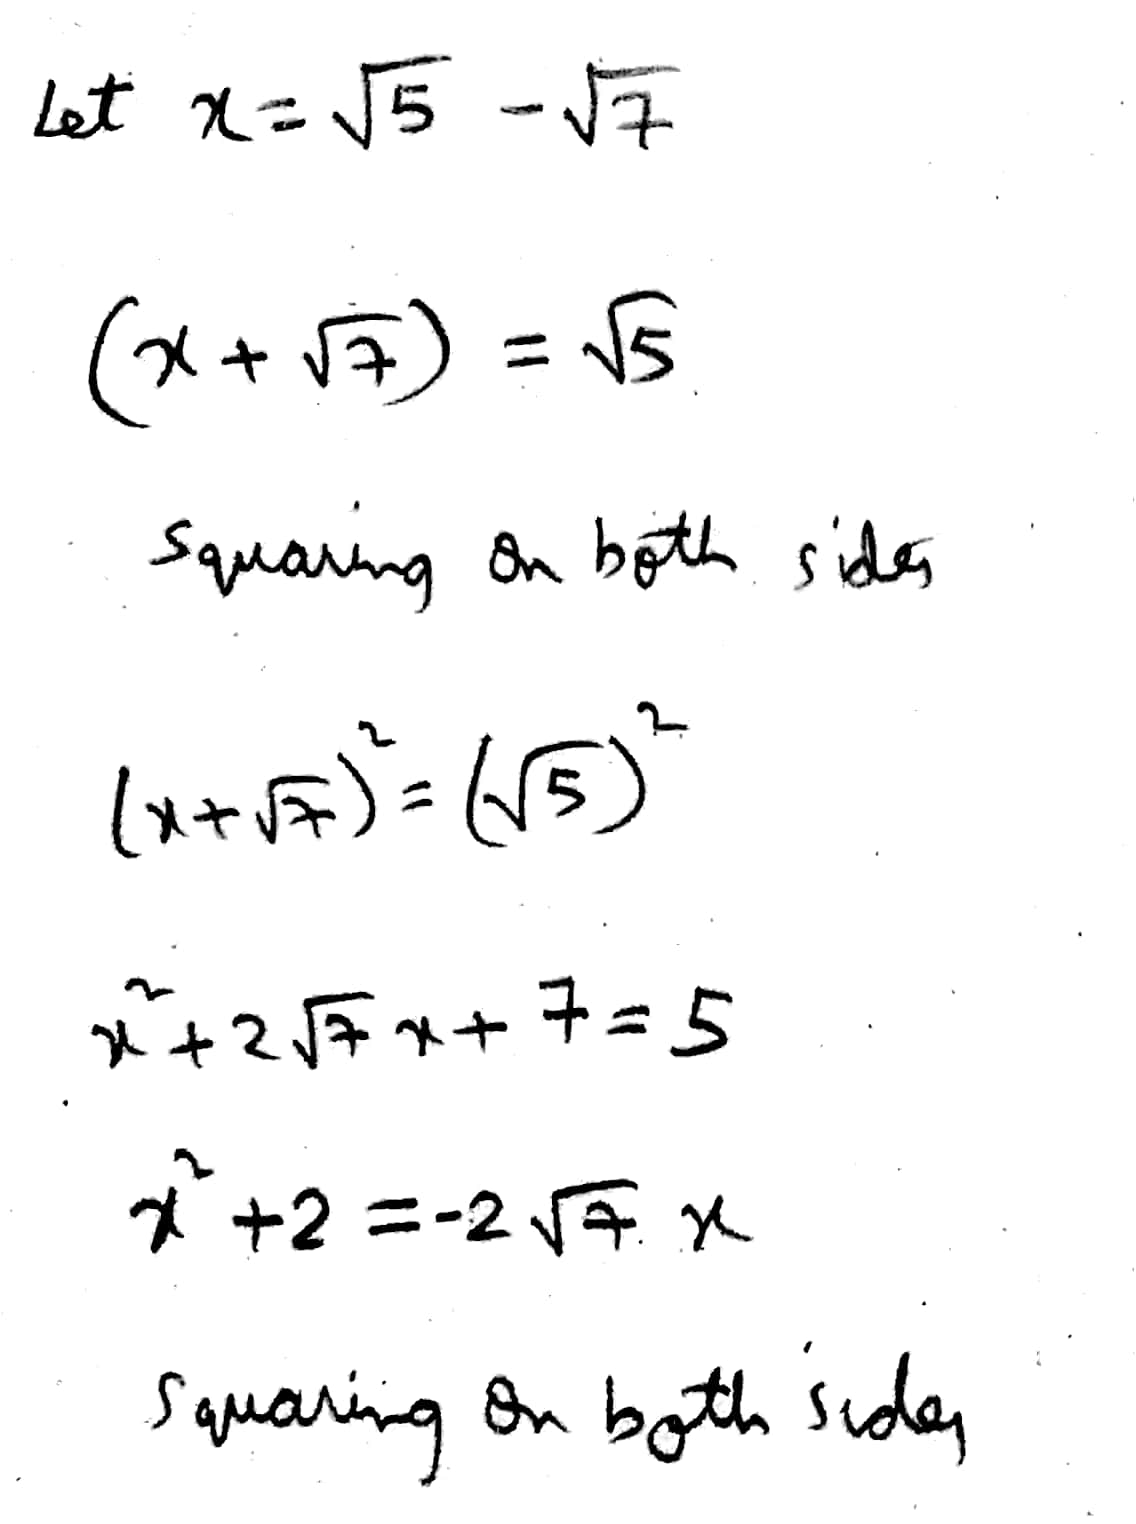 Let x = √5 - √7
(x + √7) = √5
Squaring on both sides
(x + √7)² = (√5)²
x² + 2√7 x + 7 = 5
x² + 2 = -2√7 x
Squaring on both sides